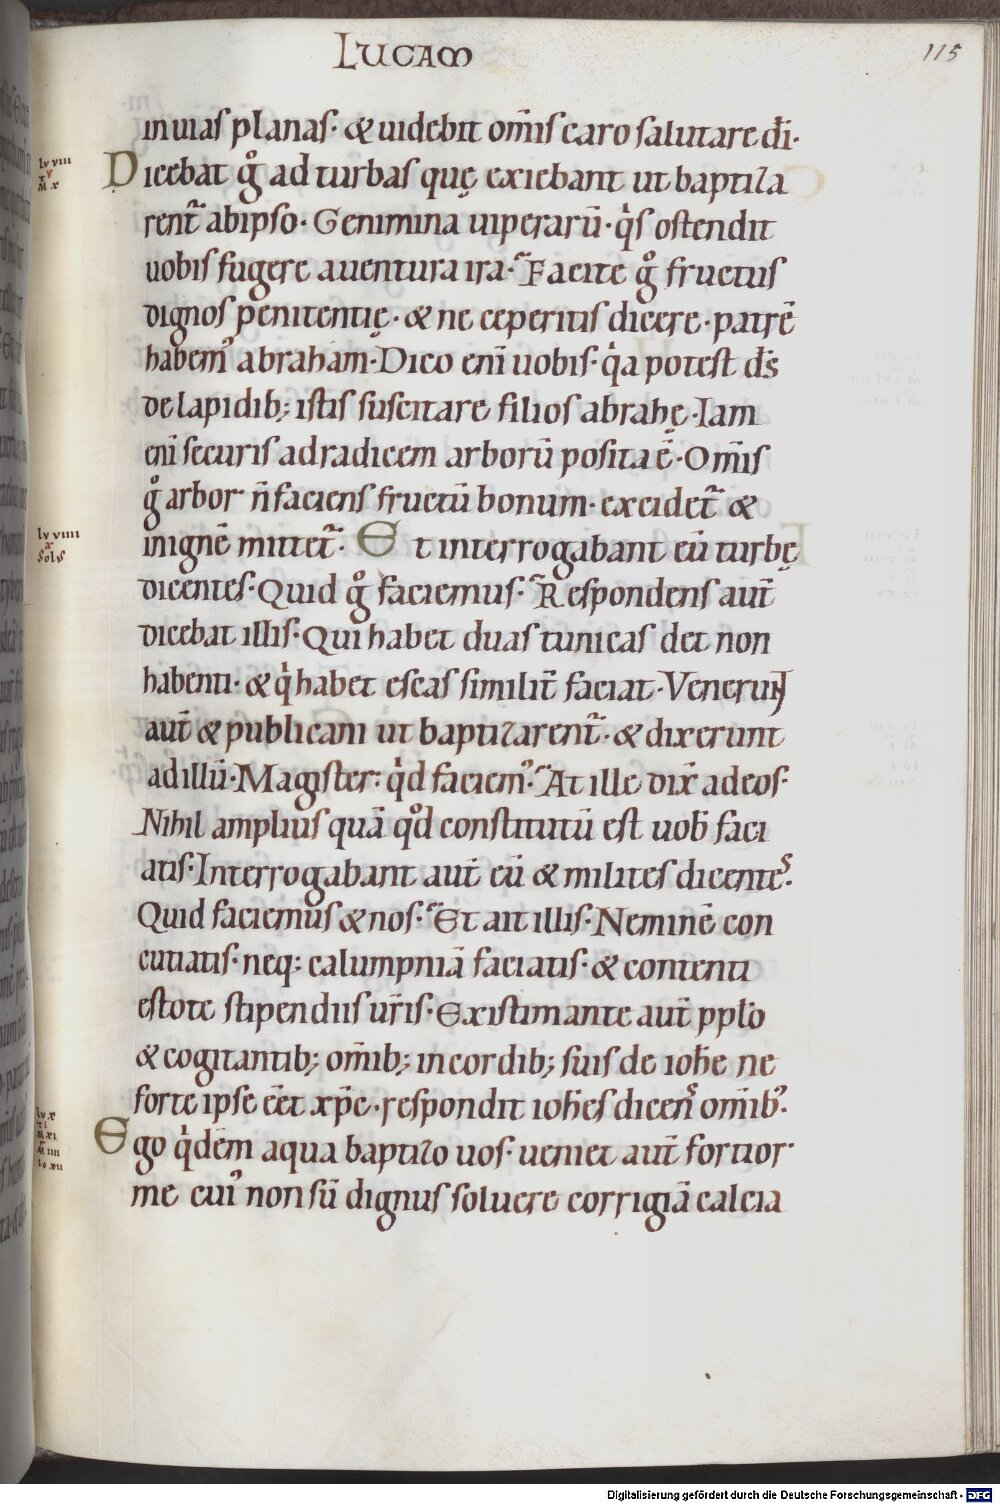 LUCAM
115
in uias planas· & uidebit om̄is caro salutare d̄i·
lv viii
v
M x
Dicebat gͦ ad turbas quę exiebant ut baptiza
rent᷑ ab ipso· Genimina uiperarū· qͥs ostendit
uobis fugere a uentura ira· Facite gͦ fructus
dignos penitentię· & ne ceperitis dicere· patrē
habem᾽ abraham· Dico eni̅ uobis· qͥa potest d̄s
de lapidib; istis suscitare filios abrahę· Iam
eni̅ securis ad radicem arborū posita ē· Om̄is
gͦ arbor n̄ faciens fructū bonum· excidet᷑ &
lv viiii
x
Solus
in ignē mittet᷑· Et interrogabant eū turbę
dicentes· Quid gͦ faciemus· Respondens aut̄
dicebat illis· Qui habet duas tunicas det non
habenti· & qͥ habet escas similit̄ faciat· Venerunt
aut̄ & publicani ut baptizarent᷑· & dixerunt
ad illū· Magister: qͥd faciem᾽· At ille dix̄ ad eos·
Nihil amplius quā qͦd constitutū est uob̄ faci
atis· Interrogabant aut̄ eū & milites dicentes·
Quid faciemus & nos· Et ait illis· Neminē con
cutiatis· neq: calumpniā faciatis· & contenti
estote stipendiis ur̄is· Existimante aut̄ pplo̅
& cogitantib; om̄ib; in cordib; suis de ioh̄e ne
forte ipse eēt xp̄c· respondit ioh̄es dicens om̄ib᾽·
lv x
M xi
M iiii
Io xii
Ego qͥdem aqua baptizo uos· ueniet aut̄ fortior
me cui᾽ non sū dignus soluere corrigiā calcia
Digitalisierung gefördert durch die Deutsche Forschungsgemeinschaft - DFG